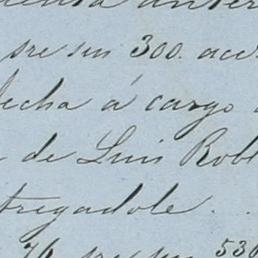 sre sun 300. acc
fecha á cargo
de Luis Robl
tregadole . .
76 sre sun 530